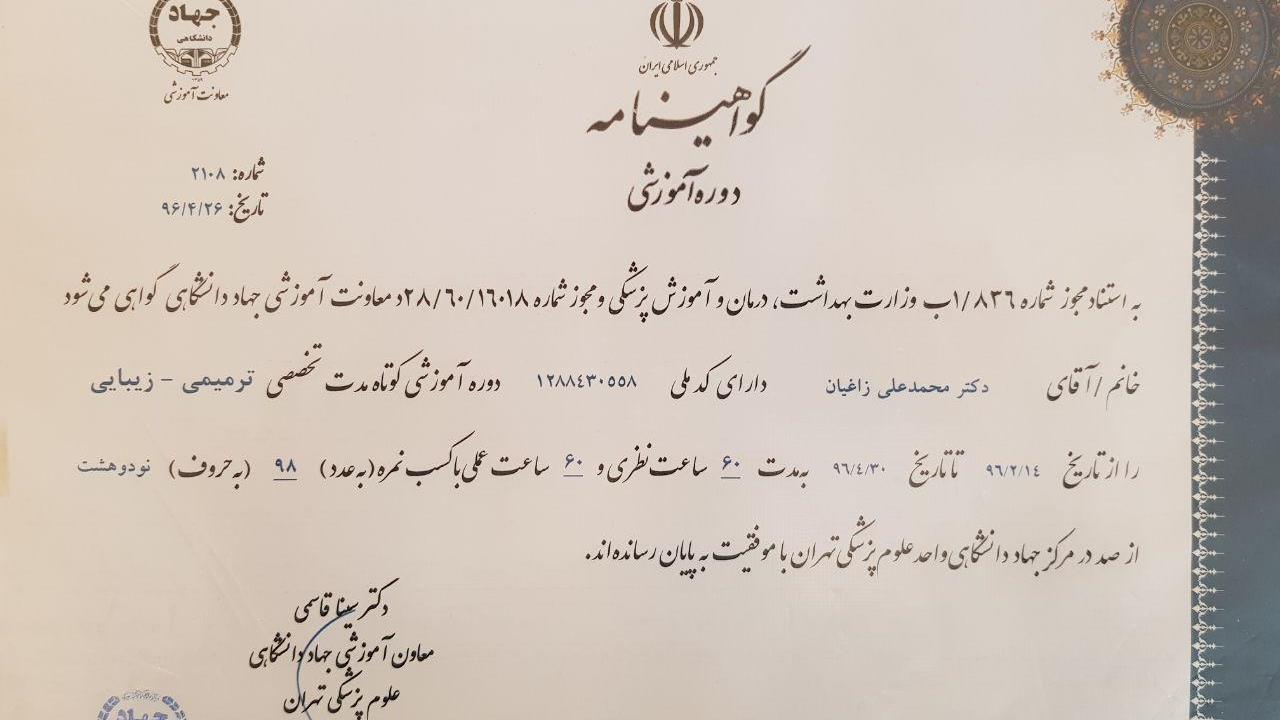 جهاد
دانشگاهی
۱۳۵۹
معاونت آموزشی
جمهوری اسلامی ایران
گواهینامه
دوره آموزشی
شماره: ۲۱۰۸
تاریخ: ۹۶/۴/۲۶
به استناد مجوز شماره ۱/۸۳٦ب وزارت بهداشت، درمان و آموزش پزشکی و مجوز شماره ۲۸/٦۰/۱٦۰۱۸د معاونت آموزشی جهاد دانشگاهی گواهی می‌شود
خانم / آقای دکتر محمدعلی زاغیان دارای کد ملی ۱۲۸۸٤۳۰۵۵۸ دوره آموزشی کوتاه مدت تخصصی ترمیمی - زیبایی
را از تاریخ ۹۶/۲/۱۴ تا تاریخ ۹۶/۴/۳۰ به مدت ۶۰ ساعت نظری و ۶۰ ساعت عملی با کسب نمره (به عدد) ۹۸ (به حروف) نودوهشت
از صد در مرکز جهاد دانشگاهی واحد علوم پزشکی تهران با موفقیت به پایان رسانده‌اند.
دکتر سینا قاسمی
معاون آموزشی جهاد دانشگاهی
علوم پزشکی تهران
جهاد